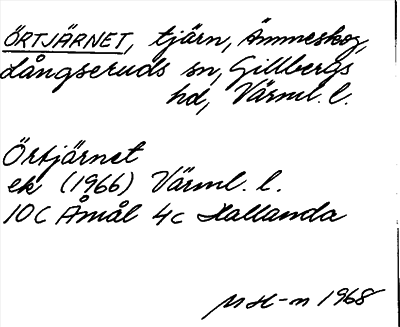 ÖRTJÄRNET, tjärn, Ämneskog,
Långseruds sn, Gillbergs
hd, Värml. l.
Örtjärnet
ek (1966) Värml. l.
10C Åmål 4c Hallanda
MH-n 1968